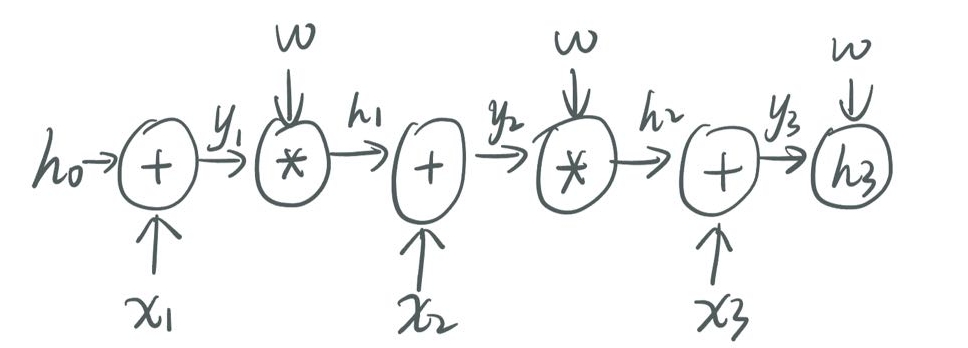 w w w
h0 + y1 * h1 + y2 * h2 + y3 h3
x1 x2 x3